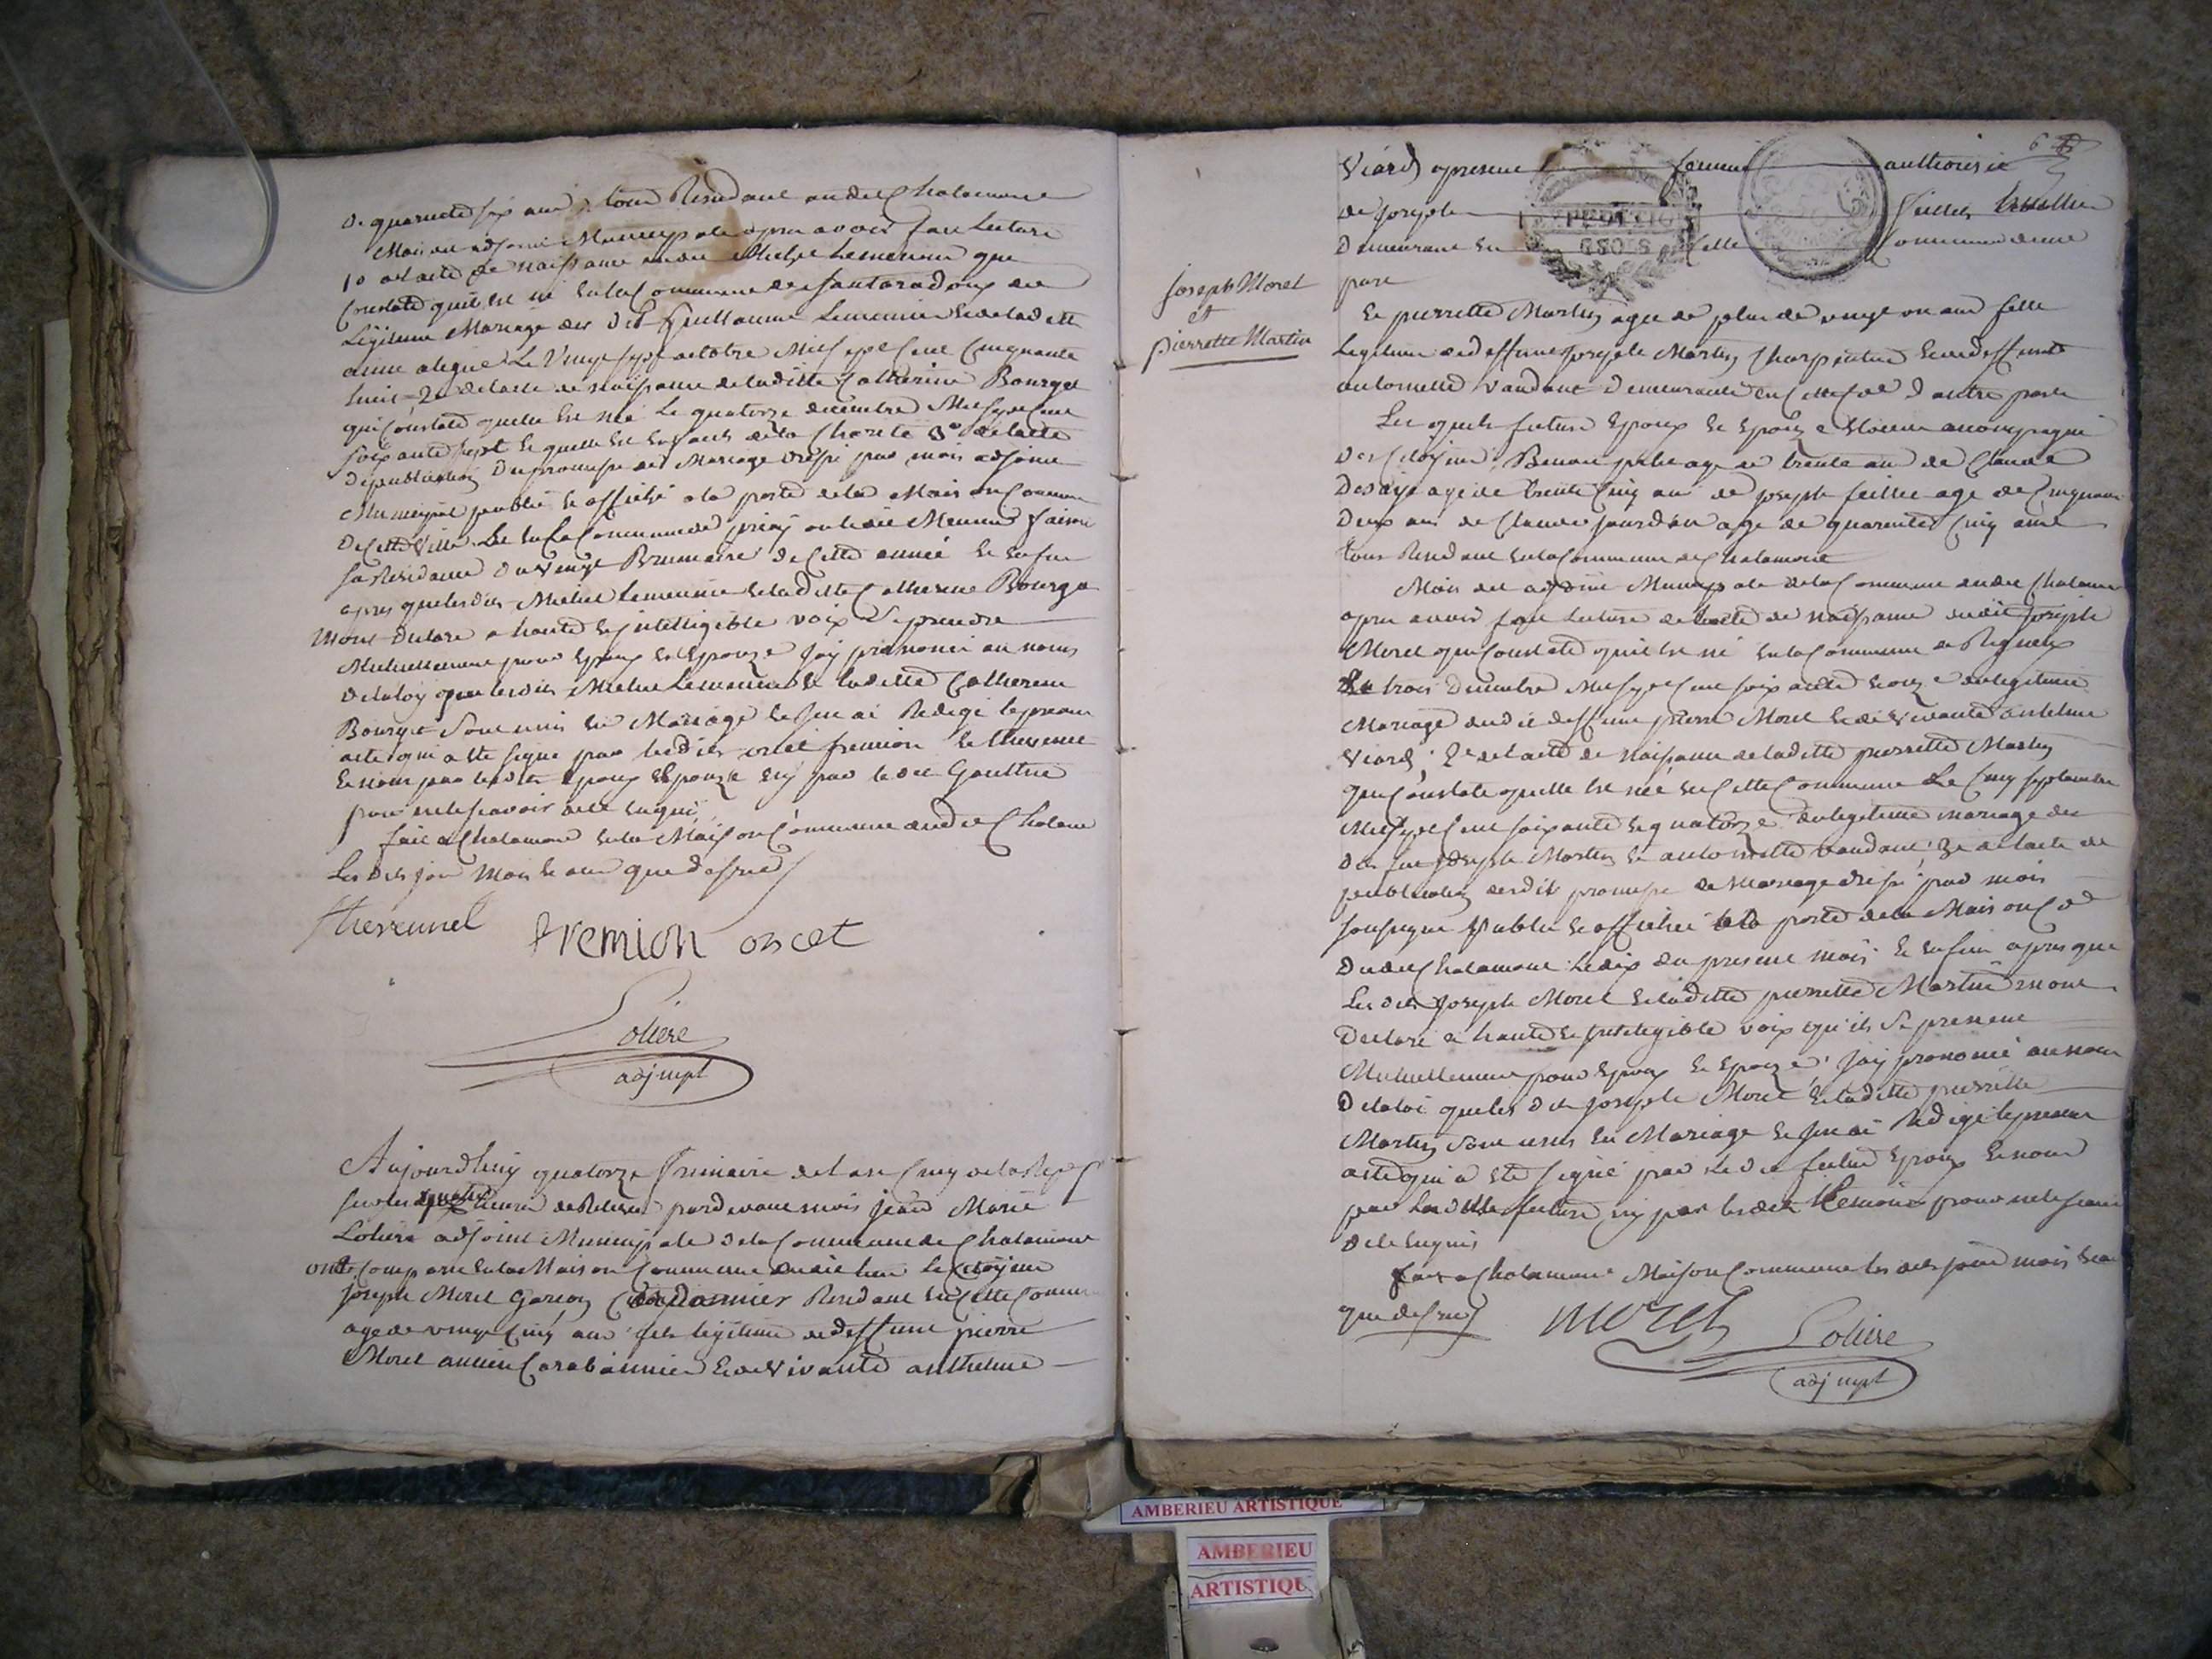 de quarante six ans tous Residant audit Chalamont
Moi dit adjoint Municipale apres avoir fait Lecture
1o de lacte de naissance dudit Michel Lemeunier que
Constate quil est né en la Commune de du
Légitime Mariage des dits Guillaume Lemeunier et de ladite
anne Le vingt sept octobre Mil sept cent cinquante
huit 2o de lacte de naissance de ladite Catherine Bourget
qui Constate quelle est née Le quatorze decembre Mil sept cent
soixante sept et quelle est enfant de la Charité 3o de lacte
de publication de promesse de Mariage dressé par moi adjoint
Municipal publié et affiché a la porte de la Maison Commune
de cette ville et en la Commune de ou ledit Meunier faisoit
sa Residance du vingt Brumaire de cette année et enfin
apres que lesdits Michel Lemeunier et ladite Catherine Bourget
mont declare a haute et jntelligible voix se prendre
Mutuellement pour Epoux et Epouze jay prononcé au nom
de la loy que lesdits Michel Lemeunier et ladite Catherine
Bourget sont unis en Mariage et jen ai Redigé le present
acte qui a été signé par lesdits oncet fremion et thevenel
et non par lesdits Epoux Epouze ny par ledit Gaultier
pour ne le scavoir de ce enquis
fait a Chalamont en la Maison Commune dudit Chalamont
Les dits jour mois et an que dessus
thevennel fremion oncet
Loliere
adj mpl
Aujourdhuy quatorze frimaire de l an cinq de la Repe
sur les quatre heures de Relevée pardevant moi jean Marie
Loliere adjoint Municipale de la Commune de Chalamont
ont Comparu en la Maison Commune dudit lieu Le Citoyen
joseph Morel Garçon Cordonnier Residant en cette Commune
agé de vingt cinq ans fils légitime de deffunt pierre
Morel ancien Carabinnier et de vivante anthelme
6
Viard a presente femme authorisée
de joseph
Demeurant en cette Commune dune
part
joseph Morel
et
pierrette Martin
Et pierrette Martin agée de plus de vingt un ans fille
Legitime de deffunt joseph Martin Charpentier et de deffunte
antoinette vaudant Demeurante en cette Cne d autre part
Les quels futurs Epoux et Epouze etoient accompagné
des Citoyens Benoit agé de trente ans de Claude
agé de trente cinq ans de joseph feillee agé de cinquante
deux ans de Claude jourdan agé de quarante cinq ans
tous Residant en la Commune de Chalamont
Moi dit adjoint Municipale de la Commune dudit Chalamont
apres avoir fait lecture de lacte de naissance dudit joseph
Morel qui Constate quil est né en la Commune de Rigneux
Le trois decembre Mil sept cent soixante et onze du legitime
Mariage dudit deffunt pierre Morel et de vivante antelme
Viard ; 2e de lacte de naissance de ladite pierrette Martin
qui Constate quelle est née en cette Commune Le cinq septembre
Mil sept cent soixante et quatorze du legitime mariage des
dits feu joseph Martin et antoinette vaudant ; 3e de lacte de
publication desdits promesse de Mariage dressé par moi
soussigné Publié et affiché a la porte de la Maison Cne
dudit Chalamont le dix du present mois et enfin apres que
Les dits joseph Morel et ladite pierrette Martin mont
Declaré a haute et jntelegible voix qu'ils se prenent
Mutuellement pour Epoux et Epouze ; jay prononcé au nom
De la loi que les dits joseph Morel et ladite pierrette
Martin sont unis en Mariage et jen ai Redigé le present
acte qui a été signé par le dit futur Epoux et non
par La dite future ny par lesdits temoins pour ne le scavoir
de ce enquis
fait a Chalamont Maison Commune les dits jour mois et an
que dessus morel Loliere
adj mpl
EXPEDITION
AMBERIEU ARTISTIQUE
AMBERIEU
ARTISTIQU